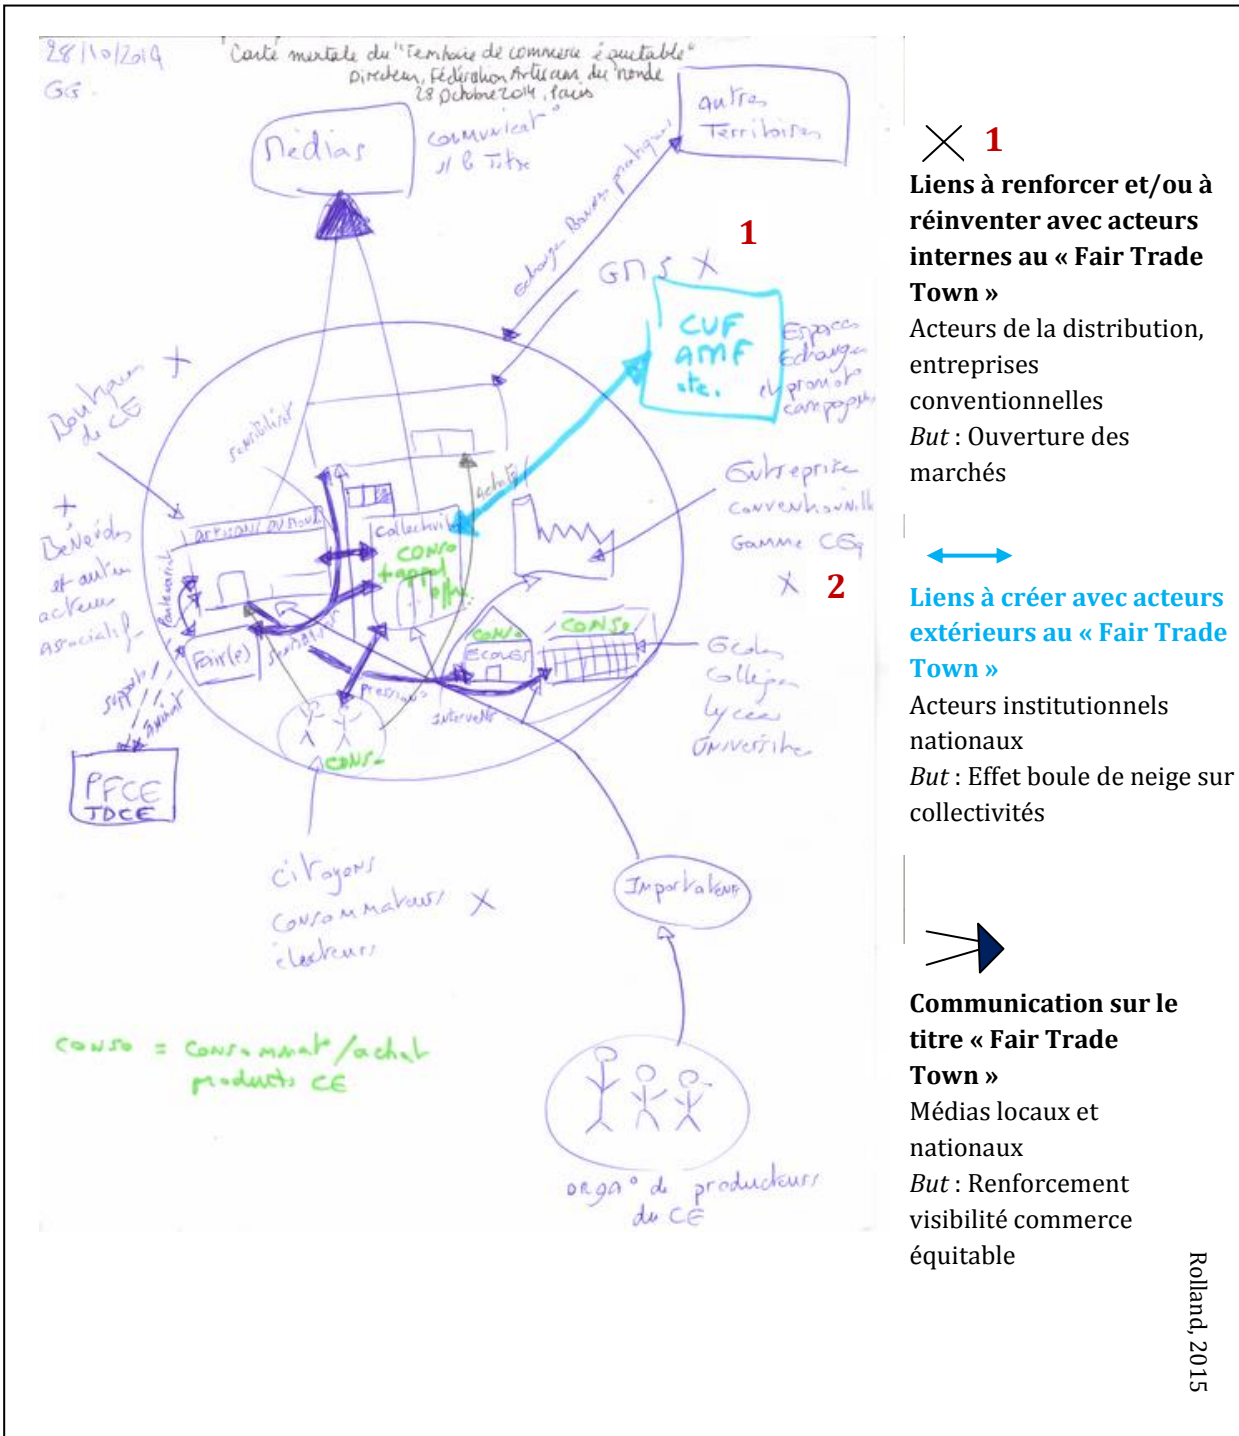 28/10/2014
GG.
Carte mentale du "Territoire de commerce équitable"
Directeur, Fédération Artisans du monde
28 Octobre 2014, Paris
Médias
communicat°
s/ le Titre
autres
Territoires
Echanges Bonnes pratiques
GMS X
1
CUF
AMF
etc.
Espaces
Echanges
et promot°
campagnes
Boutiques X
de CE
sensibilisat°
X
Bénévoles
et autres
acteurs
associatifs
ARTISANS DU MONDE
Collectivités
CONSO
+ appel
offre
achats
Entreprise
conventionnelle
Gamme CEq
X
2
Partenariat
Fair(e)
pression
intervent°
CONSO
ECOLES
CONSO
Ecoles
Collèges
Lycées
Universités
support
PFCE
TDCE
CONSO
citoyens
consommateurs X
électeurs
Importateurs
CONSO = consommat°/achat
products CE
ORGA° de producteurs
du CE
1
Liens à renforcer et/ou à
réinventer avec acteurs
internes au « Fair Trade
Town »
Acteurs de la distribution,
entreprises
conventionnelles
But : Ouverture des
marchés
Liens à créer avec acteurs
extérieurs au « Fair Trade
Town »
Acteurs institutionnels
nationaux
But : Effet boule de neige sur
collectivités
Communication sur le
titre « Fair Trade
Town »
Médias locaux et
nationaux
But : Renforcement
visibilité commerce
équitable
Rolland, 2015